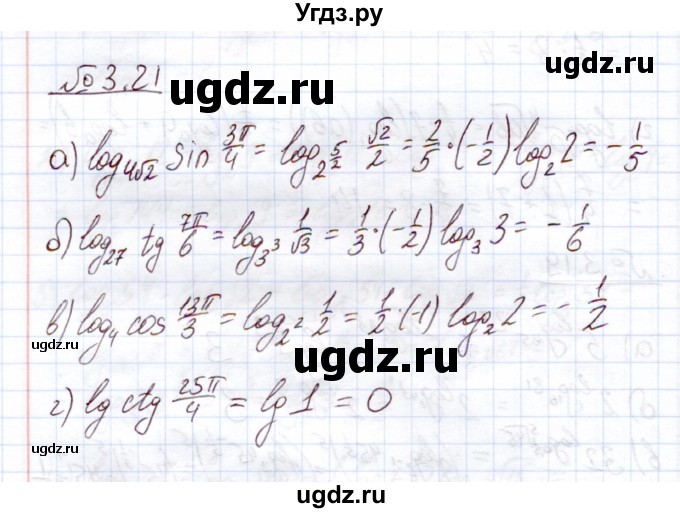 Угдз.ру
№ 3.21
ugdz.ru
ugdz.ru
а) log_{4√2} sin 3π/4 = log_{2^{5/2}} √2/2 = 2/5 · (-1/2) log_2 2 = -1/5
б) log_{27} tg 7π/6 = log_{3^3} 1/√3 = 1/3 · (-1/2) log_3 3 = -1/6
в) log_4 cos 13π/3 = log_{2^2} 1/2 = 1/2 · (-1) log_2 2 = -1/2
ugdz.ru
ugdz.ru
ugdz.ru
г) lg ctg 25π/4 = lg 1 = 0
ugdz.ru
ugdz.ru
ugdz.ru